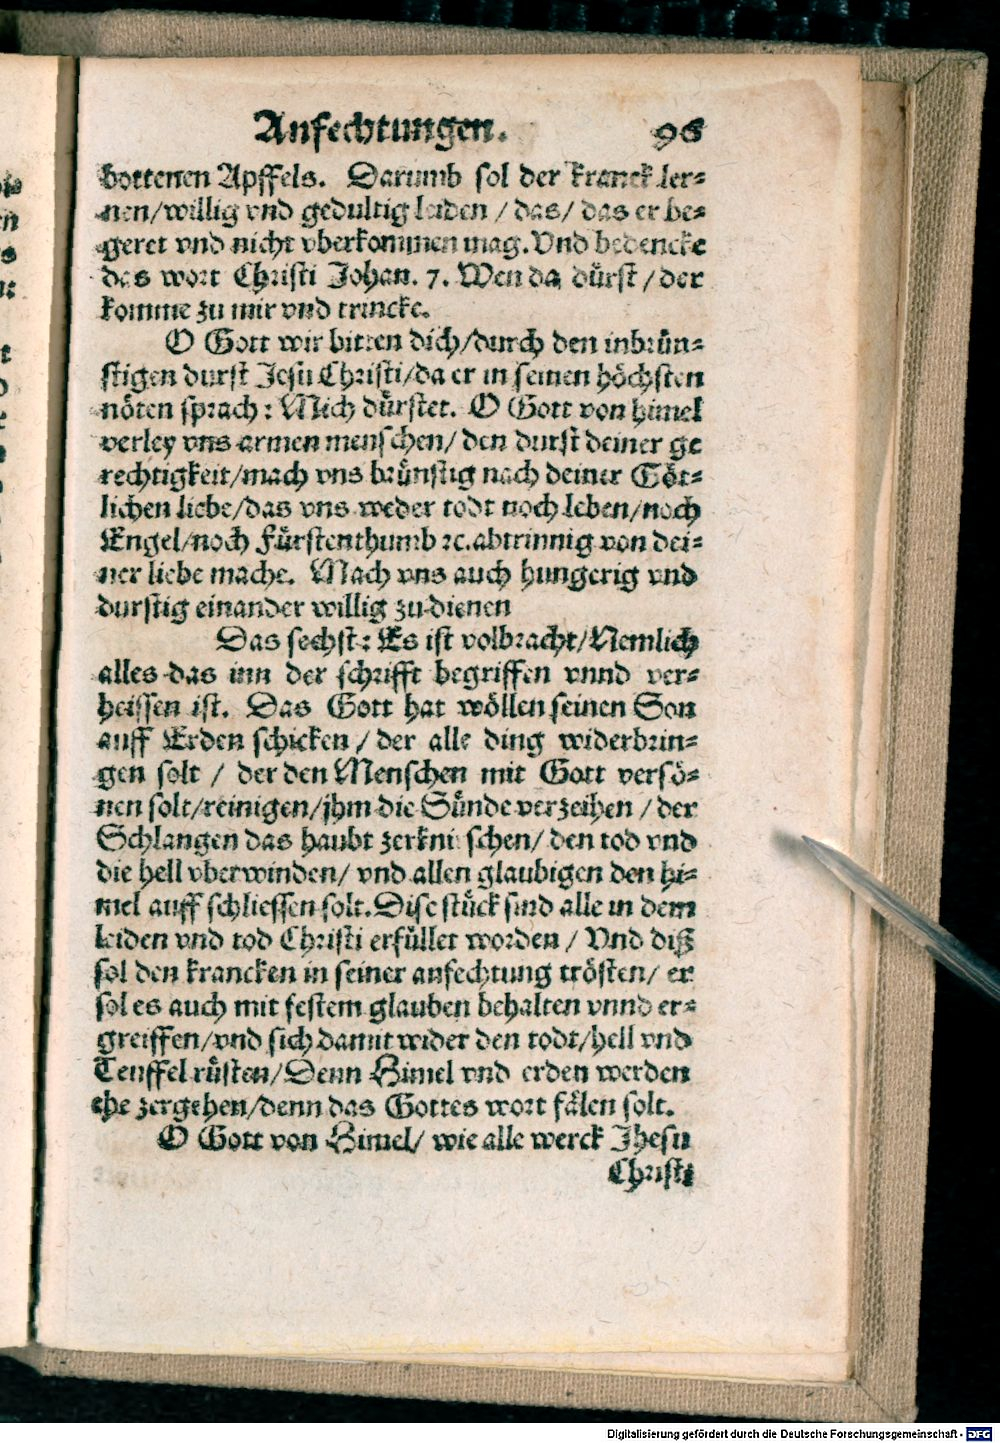 Anfechtungen. 96
bottenen Apffels. Darumb sol der kranck ler-
nen/willig vnd gedultig leiden / das/ das er be-
geret vnd nicht vberkommen mag. Vnd bedencke
das wort Christi Johan. 7. Wen da dürst / der
komme zu mir vnd trincke.
O Gott wir bitten dich/durch den inbrün-
stigen durst Jesu Christi/da er in seinen höchsten
nöten sprach: Mich dürstet. O Gott von himel
verley vns armen menschen/ den durst deiner ge
rechtigkeit/mach vns brünstig nach deiner Göt-
lichen liebe/das vns weder todt noch leben/noch
Engel/noch Fürstenthumb ꝛc. abtrinnig von dei-
ner liebe mache. Mach vns auch hungerig vnd
durstig einander willig zu dienen
Das sechst: Es ist volbracht/Nemlich
alles das inn der schrifft begriffen vnnd ver-
heissen ist. Das Gott hat wöllen seinen Son
auff Erden schicken / der alle ding widerbrin-
gen solt / der den Menschen mit Gott versö-
nen solt/reinigen/jhm die Sünde verzeihen / der
Schlangen das haubt zerknischen/ den tod vnd
die hell vberwinden/ vnd allen glaubigen den hi-
mel auff schliessen solt. Dise stück sind alle in dem
leiden vnd tod Christi erfüllet worden / Vnd diß
sol den krancken in seiner anfechtung trösten/ er
sol es auch mit festem glauben behalten vnnd er-
greiffen/vnd sich damit wider den todt/hell vnd
Teuffel rüsten/Denn Himel vnd erden werden
ehe zergehen/denn das Gottes wort fälen solt.
O Gott von Himel/ wie alle werck Jhesu
Christi
Digitalisierung gefördert durch die Deutsche Forschungsgemeinschaft - DFG